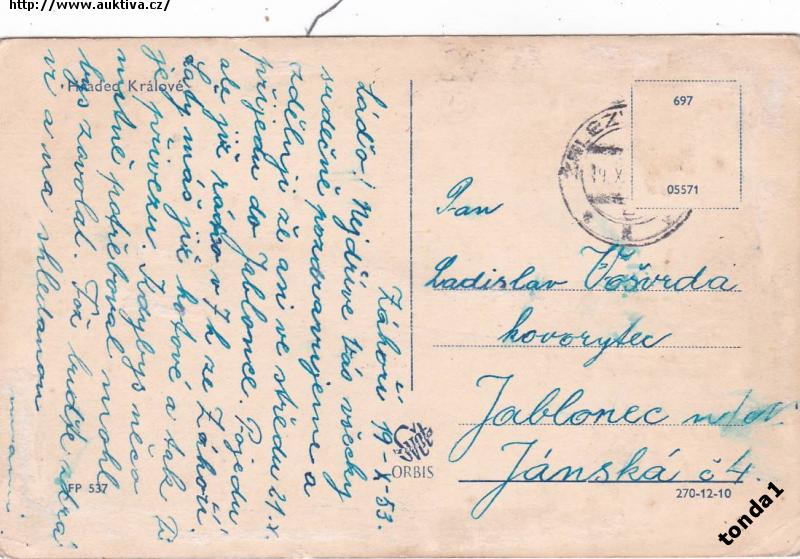 http://www.auktiva.cz/
Hradec Králové
Záhoří 19-X-53.
Láďo! Nejdříve Vás všecky
srdečně pozdravujeme a
sděluji že asi ve středu 21.X.
přijedu do Jablonce. Pojedu
ale již ráno v 7 h ze Záhoří.
již hotové a tak Ti
je přivezu. Kdybys něco
nutně potřeboval mohl
bys zavolat. Tož buďte zdrá
vi a na shledanou
FP 537
ORBIS
697
05571
Pan
Ladislav Vošvrda
kovorytec
Jablonec n/N
Jánská č 4.
270-12-10
tonda1